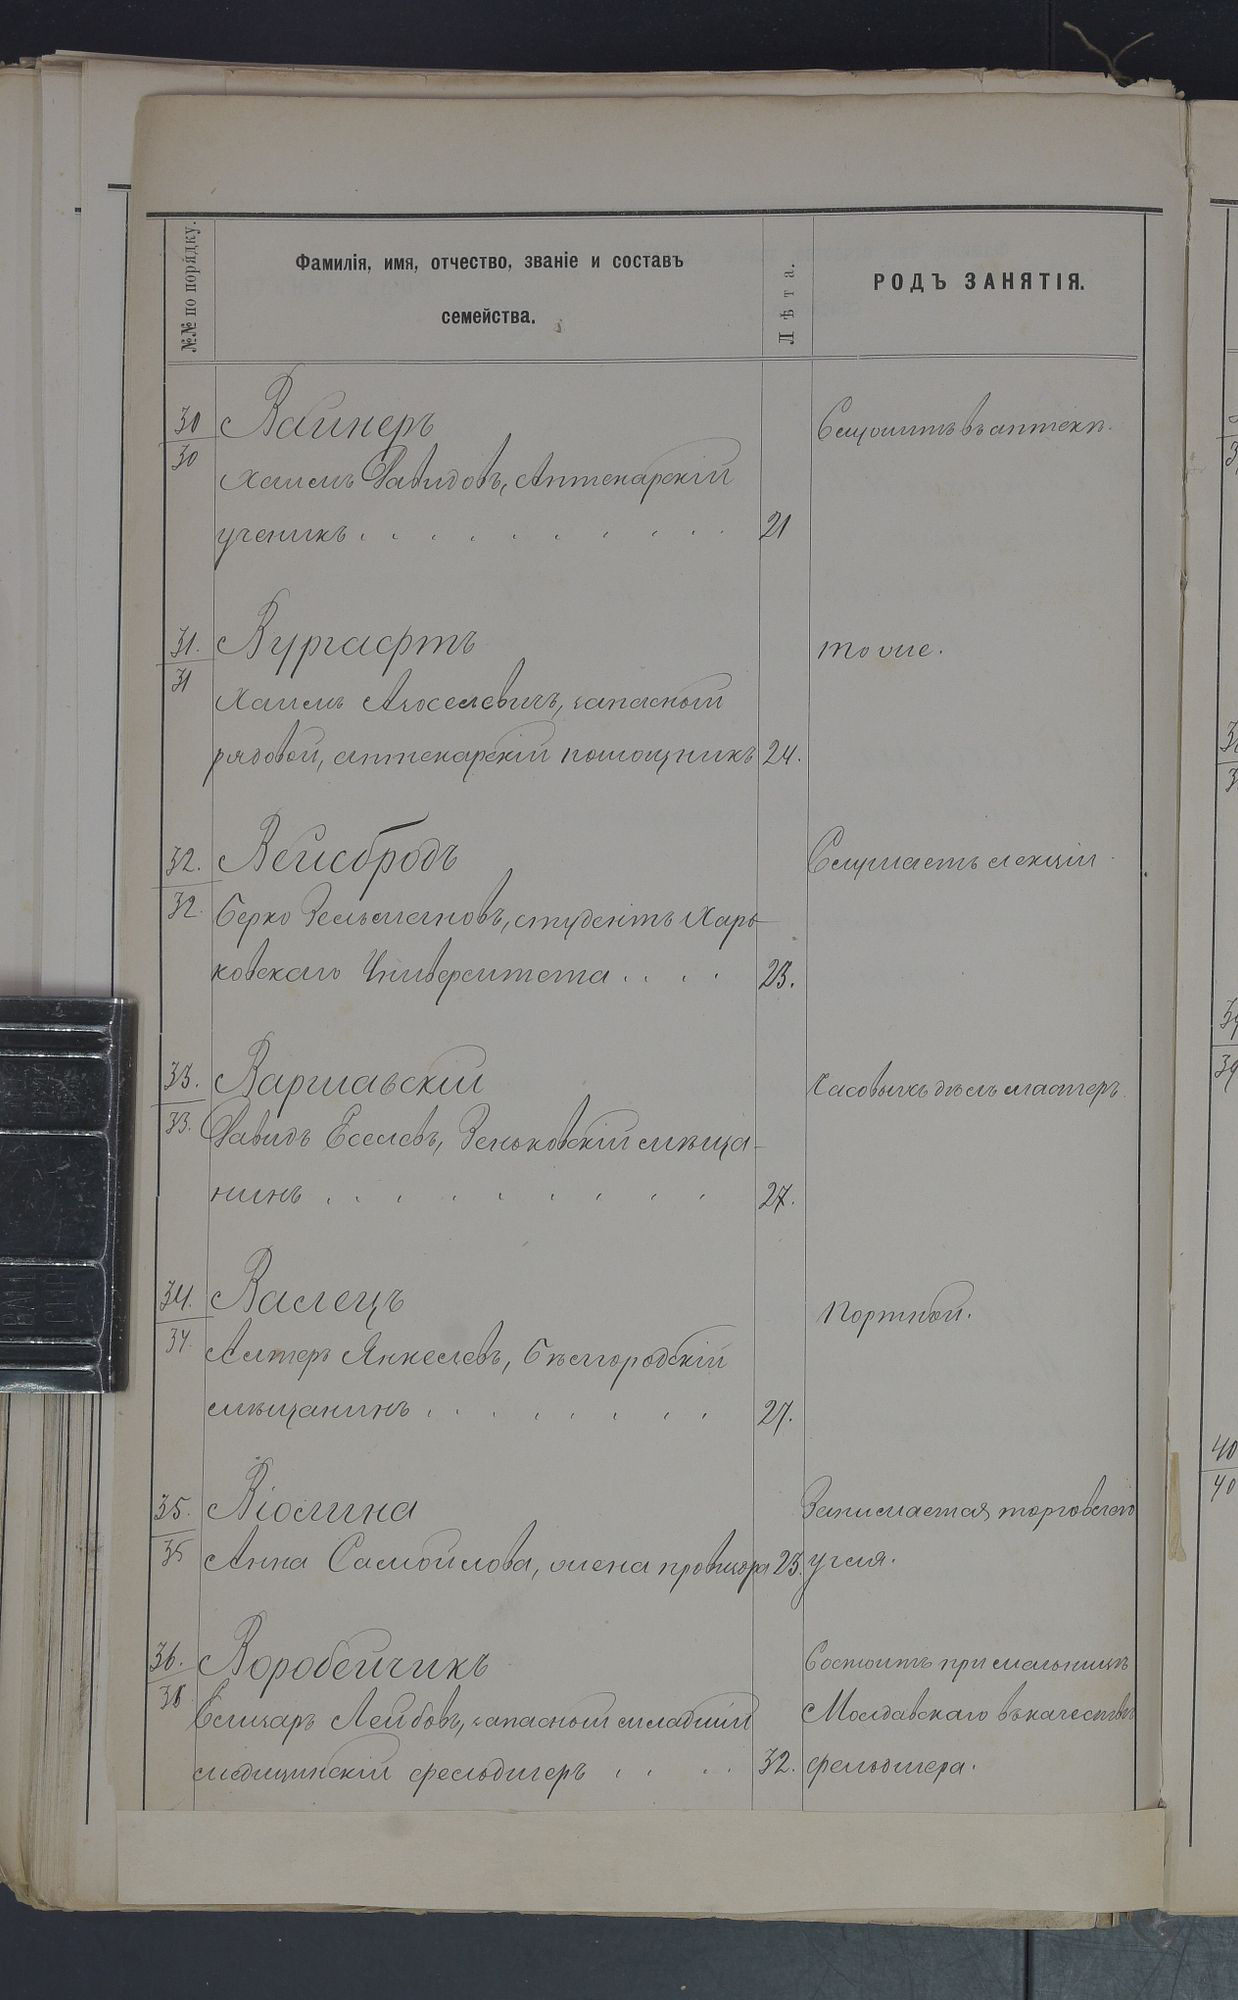 №№ по порядку.
Фамилія, имя, отчество, званіе и составъ
семейства.
Лѣта.
РОДЪ ЗАНЯТІЯ.
30 Вайнеръ Служитъ въ аптекѣ.
30 Хаимъ Давидовъ, Аптекарскій
ученикъ . . . . . . . . . . 21
31. Вургафтъ тоже.
31 Хаимъ Айоселевичъ, запасный
рядовой, аптекарскій помощникъ 24.
32. Вейсбродъ Слушаетъ лекціи
32. Берко Зельмановъ, студентъ Харь-
ковскаго Университета . . . . 23.
33. Варшавскій Часовыхъ дѣлъ мастеръ.
33. Давидъ Еселевъ, Зеньковскій мѣща-
нинъ . . . . . . . . . 27.
34. Валецъ Портной.
34. Алтеръ Янкелевъ, Бѣлгородскій
мѣщанинъ . . . . . . . . 27.
35. Віолина Занимается торговлею
35 Анна Самойлова, жена провизора 23. угля.
36. Воробейчикъ Состоитъ при мельницѣ
36 Елизаръ Лейбовъ, запасный младшій Молдавскаго въ качествѣ
медицинскій фельдшеръ . . . . 32. фельдшера.
40
40